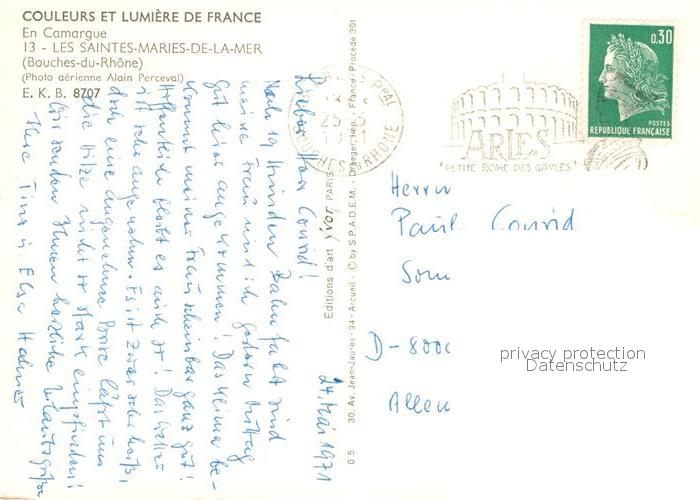 COULEURS ET LUMIÈRE DE FRANCE
En Camargue
13 - LES SAINTES-MARIES-DE-LA-MER
(Bouches-du-Rhône)
(Photo aérienne Alain Perceval)
E. K. B. 8707
24. Mai 1971
Lieber Herr Conrid!
Nach 19 Stunden Bahnfahrt sind
meine Frau und ich gestern Mittag
gut hier angekommen! Das Klima be-
kommt meiner Frau scheinbar ganz gut!
Hoffentlich bleibt es auch so! Das Hotel
ist sehr angenehm. Es ist zwar sehr heiß,
doch eine angenehme Brise läßt uns
die Hitze nicht so stark empfinden!
Wir senden Ihnen herzliche Urlaubsgrüße
Ihre u. Elsa
Editions d'art yvon PARIS
30, Av. Jean-Jaurès - 94 - Arcueil - © by S.P.A.D.E.M. - Draeger, Imp. - France - Procédé 301
PPAL
25-5
BOUCHES DU RHONE
ARLES
"PETITE ROME DES GAULES"
0,30
POSTES
REPUBLIQUE FRANÇAISE
Herrn
Paul Conrid
D-800
privacy protection
Datenschutz